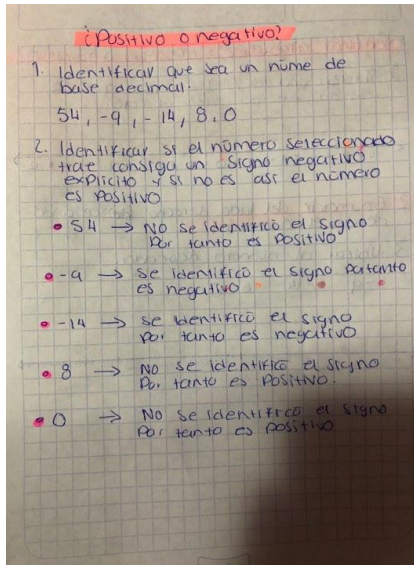 ¿Positivo o negativo?
1. Identificar que sea un nume de
base decimal.
54, -9, -14, 8, 0
2. Identificar si el número seleccionado
trae consigo un signo negativo
explicito y si no es así el número
es positivo
• 54 → No se identificó el signo
por tanto es positivo
• -9 → se identificó el signo portanto
es negativo
• -14 → se identificó el signo
por tanto es negativo
• 8 → No se identificó el signo
por tanto es positivo.
• 0 → No se identificó el signo
por tanto es positivo